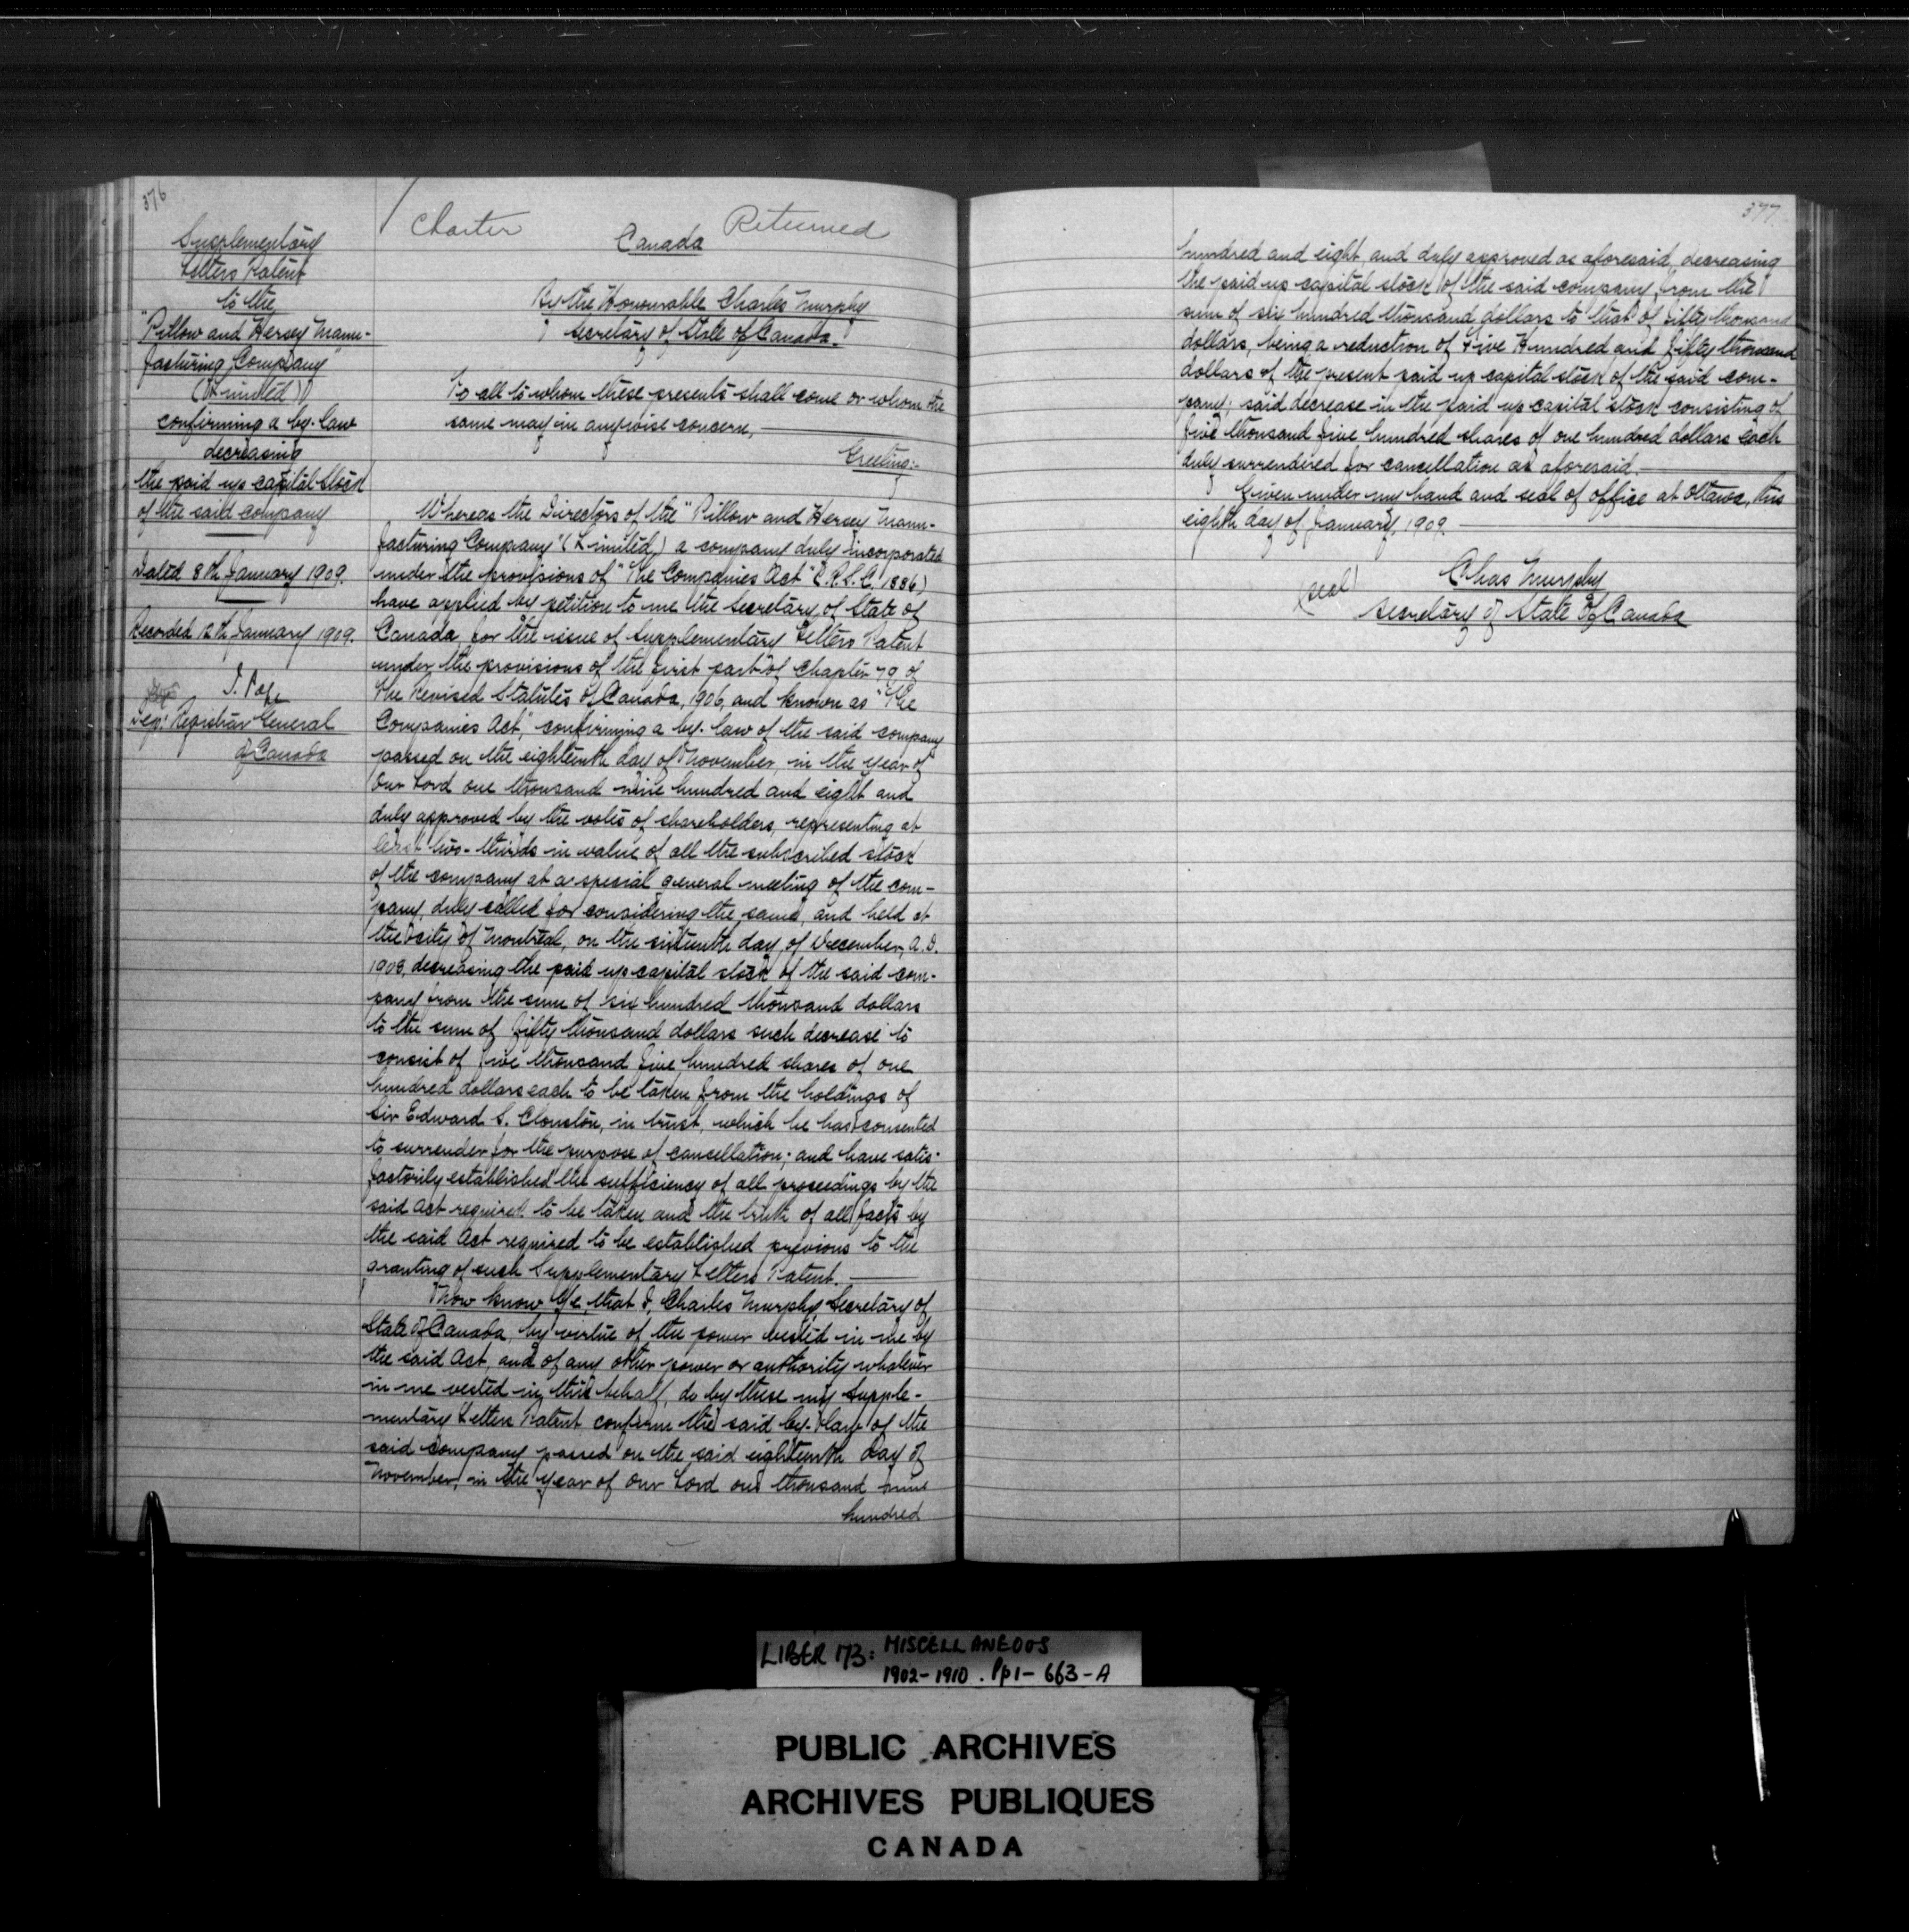 376
Supplementary
Letters Patent
to the
"Pillow and Hersey Manu-
facturing Company"
(Limited)
confirming a by-law
decreasing
the paid up capital stock
of the said company
Dated 8th January 1909.
Recorded 12th January 1909.
J. Pope
Dep: Registrar General
of Canada
Charter Returned
Canada
By the Honourable Charles Murphy
Secretary of State of Canada.
To all to whom these presents shall come or whom the
same may in anywise concern,
Greeting:-
Whereas the Directors of the "Pillow and Hersey Manu-
facturing Company" (Limited,) a company duly incorporated
under the provisions of "The Companies Act" (R.S.C. 1886)
have applied by petition to me the Secretary of State of
Canada for the issue of Supplementary Letters Patent
under the provisions of the first part of Chapter 79 of
The Revised Statutes of Canada, 1906, and known as "The
Companies Act," confirming a by-law of the said company
passed on the eighteenth day of November, in the year of
Our Lord one thousand nine hundred and eight and
duly approved by the votes of shareholders, representing at
least two-thirds in value of all the subscribed stock
of the company at a special general meeting of the com-
pany duly called for considering the same, and held at
the city of Montreal, on the sixteenth day of December, A.D.
1908, decreasing the paid up capital stock of the said com-
pany from the sum of six hundred thousand dollars
to the sum of fifty thousand dollars such decrease to
consist of five thousand five hundred shares of one
hundred dollars each to be taken from the holdings of
Sir Edward S. Clouston, in trust, which he has consented
to surrender for the purpose of cancellation; and have satis-
factorily established the sufficiency of all proceedings by the
said Act required to be taken and the truth of all facts by
the said Act required to be established previous to the
granting of such Supplementary Letters Patent.
Now know Ye, that I, Charles Murphy, Secretary of
State of Canada, by virtue of the power vested in me by
the said Act, and of any other power or authority whatever
in me vested in this behalf, do by these my Supple-
mentary Letters Patent confirm the said by-law of the
said company passed on the said eighteenth day of
November, in the year of Our Lord one thousand nine
hundred
377
hundred and eight and duly approved as aforesaid, decreasing
the paid up capital stock of the said company from the
sum of six hundred thousand dollars to that of fifty thousand
dollars, being a reduction of Five Hundred and fifty thousand
dollars of the present paid up capital stock of the said com-
pany; said decrease in the paid up capital stock consisting of
five thousand five hundred shares of one hundred dollars each
duly surrendered for cancellation as aforesaid.
Given under my hand and seal of office at Ottawa, this
eighth day of January, 1909.
(seal) Chas Murphy
Secretary of State of Canada
LIBER 173: MISCELLANEOUS
1902-1910. Pp 1-663-A
PUBLIC ARCHIVES
ARCHIVES PUBLIQUES
CANADA